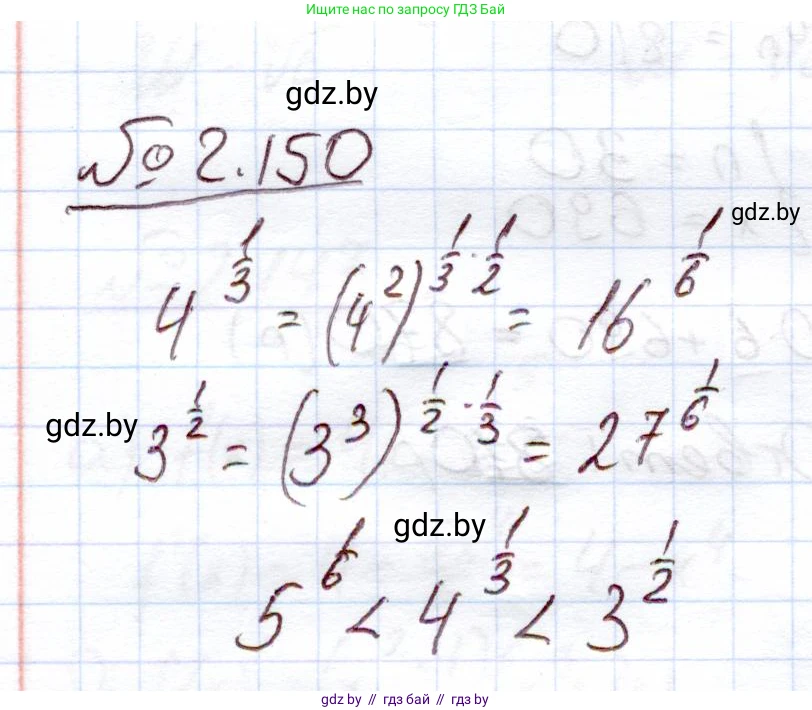 Ищите нас по запросу ГДЗ Бай
gdz.by
№ 2.150
gdz.by
4^{1/3} = (4^2)^{1/3 · 1/2} = 16^{1/6}
gdz.by
3^{1/2} = (3^3)^{1/2 · 1/3} = 27^{1/6}
gdz.by
5^{1/6} < 4^{1/3} < 3^{1/2}
gdz.by // гдз бай // gdz.by